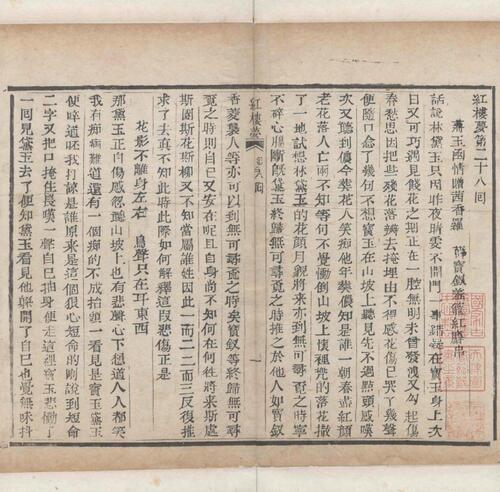 紅樓夢第二十八回
蔣玉函情贈茜香羅　薛寶釵羞籠紅麝串
話說林黛玉只因昨夜晴雯不開門一事錯疑在寶玉身上次
日又可巧遇見餞花之期正在一腔無明未曾發洩又勾起傷
春愁思因把些殘花落瓣去掩埋由不得感花傷己哭了幾聲
便隨口念了幾句不想寶玉在山坡上聽見先不過點頭感嘆
次又聽到儂今葬花人笑痴他年葬儂知是誰一朝春盡紅顏
老花落人亡兩不知等句不覺慟倒山坡上懷裡兜的落花撒
了一地試想林黛玉的花顏月貌將來亦到無可尋覓之時寧
不碎心腸斷既黛玉終歸無可尋覓之時推之於他人如寶釵
紅樓夢　第廿八回　一
香菱襲人等亦可以到無可尋覓之時矣寶釵等終歸無可尋
覓之時則自己又安在呢且自身尚不知何在何往將來斯處
斯園斯花斯柳又不知當屬誰姓因此一而二二而三反復推
求了去真不知此時此際如何解釋這段悲傷正是
花影不離身左右　鳥聲只在耳東西
那黛玉正自傷感忽聽山坡上也有悲聲心下想道人人都笑
我有痴病難道還有一個痴的不成抬頭一看見是寶玉黛玉
便啐道呸我打諒是誰原來是這個狠心短命的剛說到短命
二字又把口掩住長嘆一聲自己抽身便走這裡寶玉悲慟了
一回見黛玉去了便知黛玉看見他躲開了自己也覺無味抖